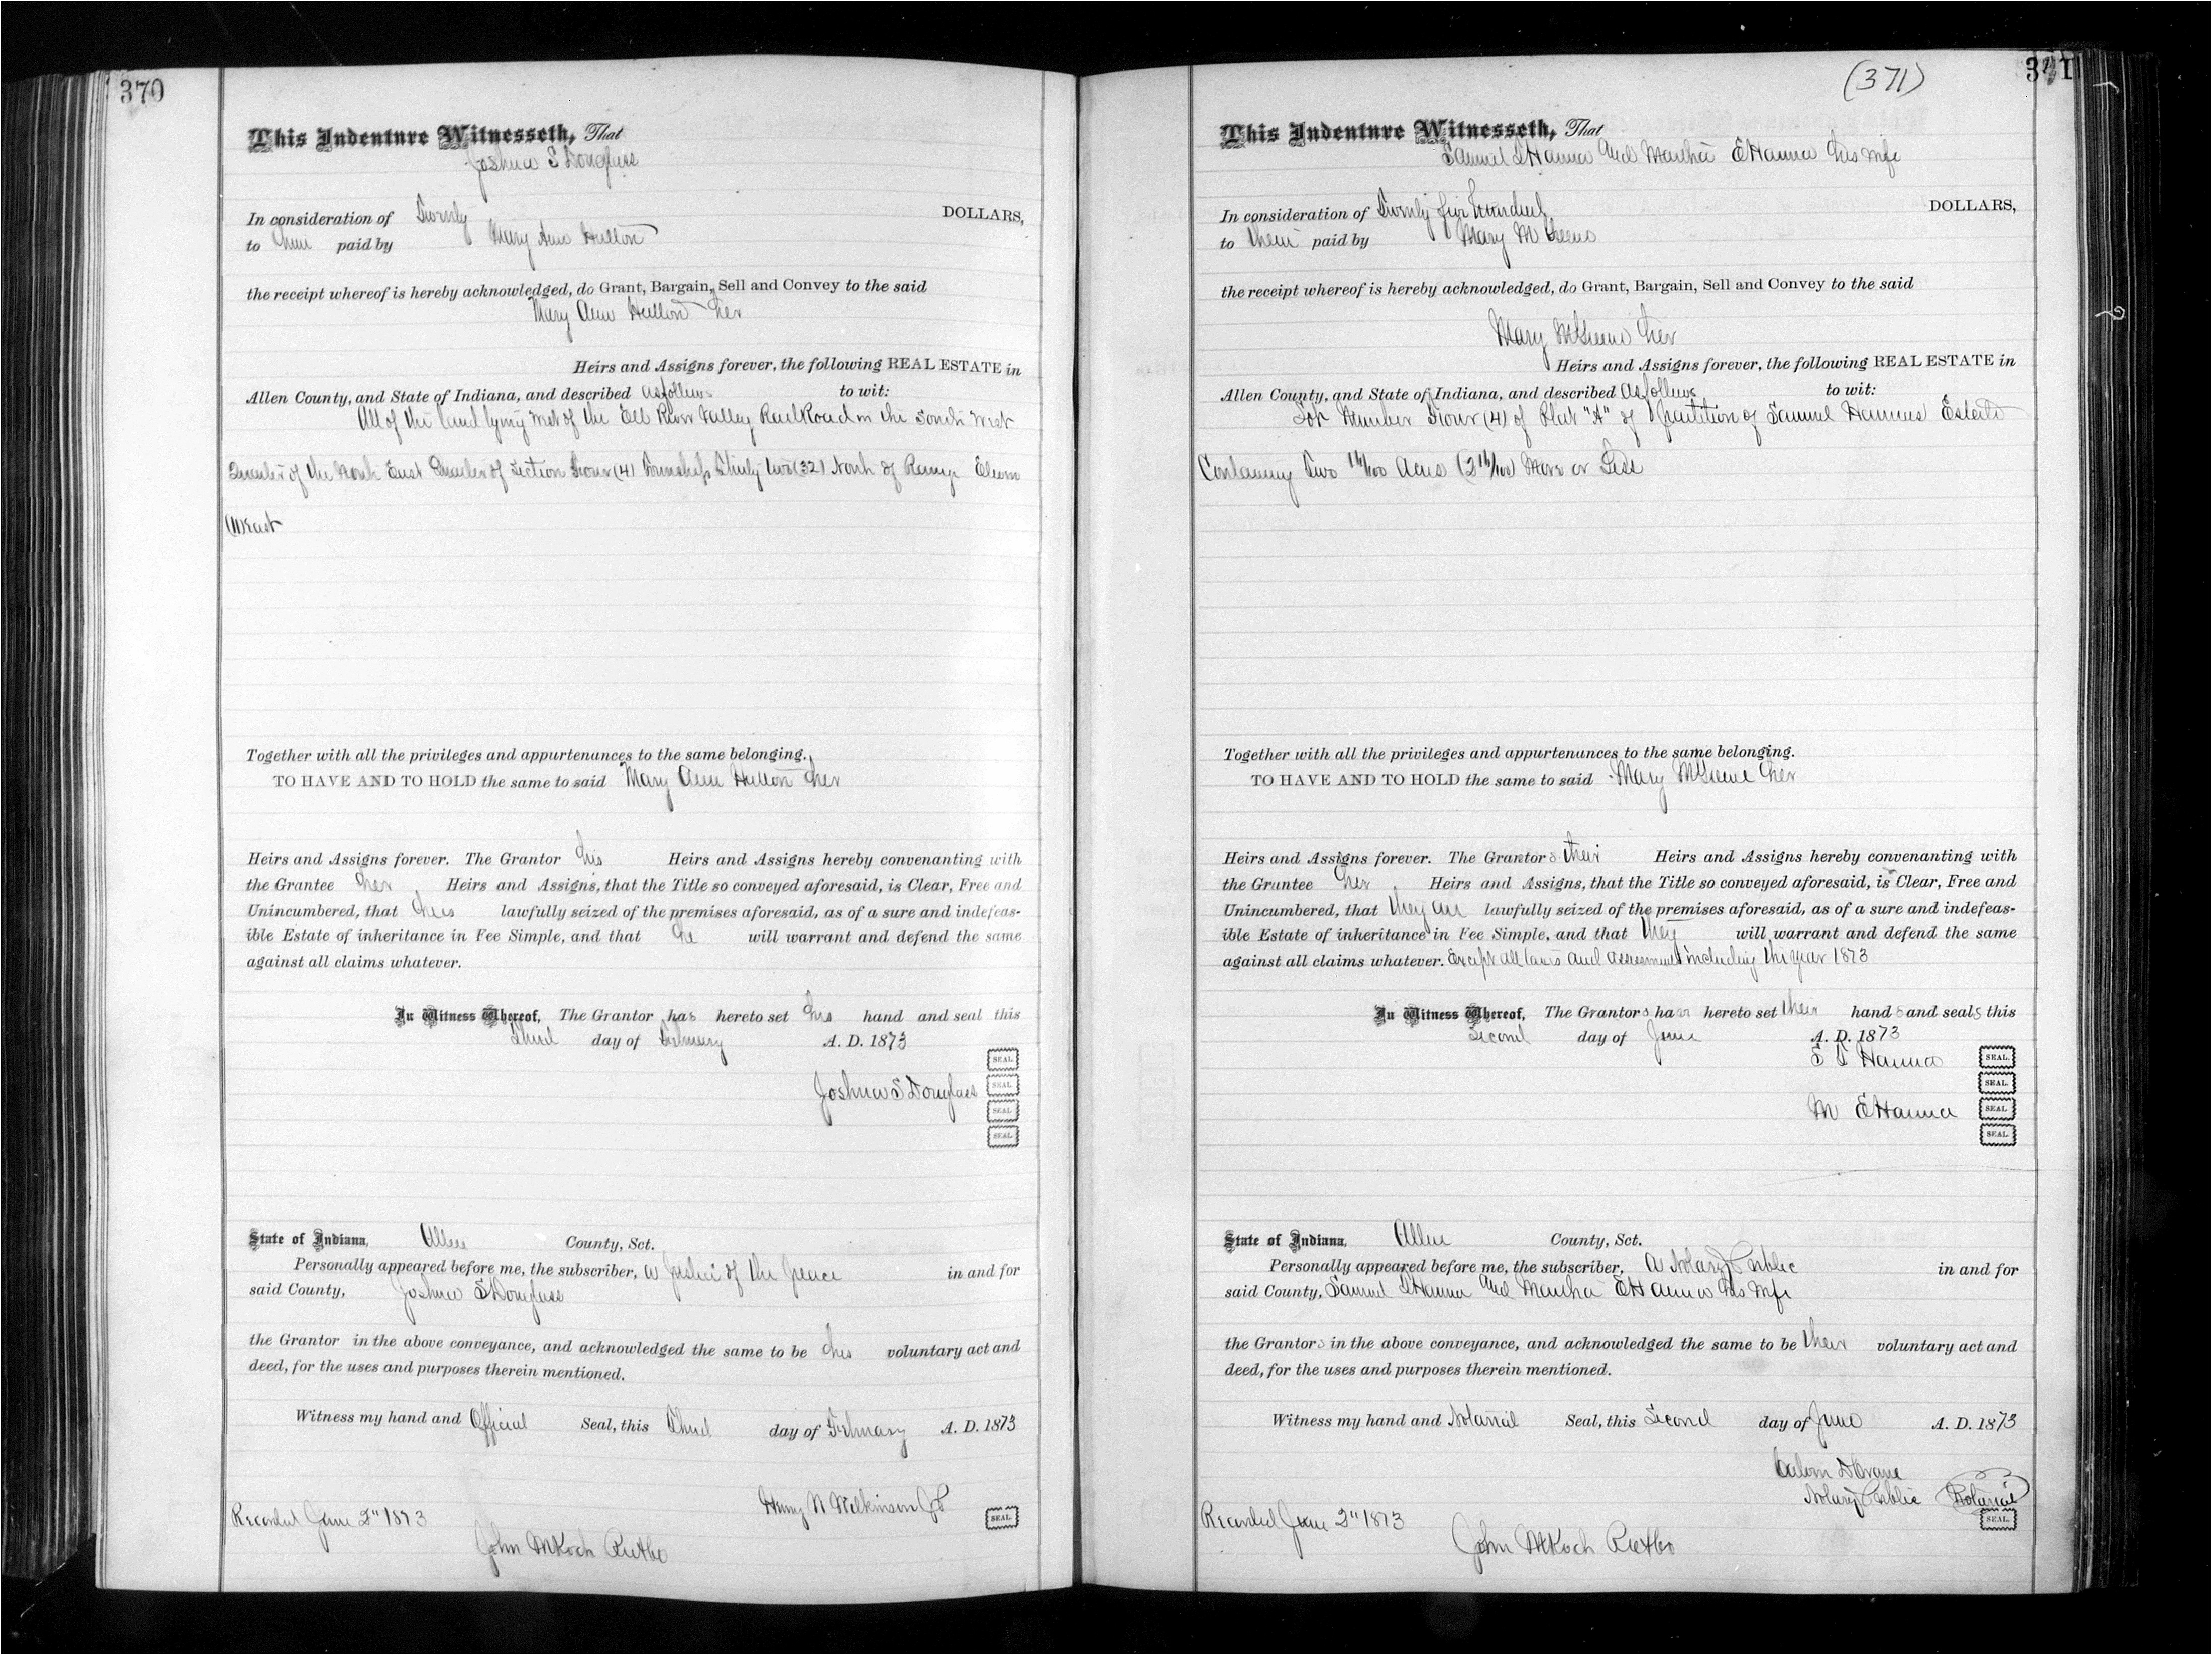 370
This Indenture Witnesseth, That
Joshua S Douglass
In consideration of Twenty DOLLARS,
to him paid by Mary Ann Hutton
the receipt whereof is hereby acknowledged, do Grant, Bargain, Sell and Convey to the said
Mary Ann Hutton her
Heirs and Assigns forever, the following REAL ESTATE in
Allen County, and State of Indiana, and described as follows to wit:
All of the land lying west of the Eel River Valley Rail Road in the South West
Quarter of the North East Quarter of Section Four (4) Township Thirty two (32) North of Range Eleven
(11) East
Together with all the privileges and appurtenances to the same belonging.
TO HAVE AND TO HOLD the same to said Mary Ann Hutton her
Heirs and Assigns forever. The Grantor his Heirs and Assigns hereby convenanting with
the Grantee her Heirs and Assigns, that the Title so conveyed aforesaid, is Clear, Free and
Unincumbered, that he is lawfully seized of the premises aforesaid, as of a sure and indefeas-
ible Estate of inheritance in Fee Simple, and that he will warrant and defend the same
against all claims whatever.
In Witness Whereof, The Grantor has hereto set his hand and seal this
Third day of February A. D. 1873
SEAL.
Joshua S Douglass SEAL.
SEAL.
SEAL.
State of Indiana, Allen County, Sct.
Personally appeared before me, the subscriber, a Justice of the peace in and for
said County, Joshua S Douglass
the Grantor in the above conveyance, and acknowledged the same to be his voluntary act and
deed, for the uses and purposes therein mentioned.
Witness my hand and Official Seal, this Third day of February A. D. 1873
Henry N Wilkinson JP
Recorded June 2" 1873 SEAL.
John M Koch
(371)
371
This Indenture Witnesseth, That
Samuel S Hanna and Martha E Hanna his wife
In consideration of Twenty five hundred DOLLARS,
to them paid by Mary M Greene
the receipt whereof is hereby acknowledged, do Grant, Bargain, Sell and Convey to the said
Mary M Greene her
Heirs and Assigns forever, the following REAL ESTATE in
Allen County, and State of Indiana, and described as follows to wit:
Lot Number Four (4) of Plat "A" of partition of Samuel Hannas Estate
Containing Two 16/100 Acres (2 16/100) More or Less
Together with all the privileges and appurtenances to the same belonging.
TO HAVE AND TO HOLD the same to said Mary M Greene her
Heirs and Assigns forever. The Grantors their Heirs and Assigns hereby convenanting with
the Grantee her Heirs and Assigns, that the Title so conveyed aforesaid, is Clear, Free and
Unincumbered, that they are lawfully seized of the premises aforesaid, as of a sure and indefeas-
ible Estate of inheritance in Fee Simple, and that they will warrant and defend the same
against all claims whatever. Except all taxes and assessments including the year 1873
In Witness Whereof, The Grantors have hereto set their hands and seals this
Second day of June A. D. 1873
S S Hanna SEAL.
SEAL.
M E Hanna SEAL.
SEAL.
State of Indiana, Allen County, Sct.
Personally appeared before me, the subscriber, a Notary Public in and for
said County, Samuel S Hanna and Martha E Hanna his wife
the Grantors in the above conveyance, and acknowledged the same to be their voluntary act and
deed, for the uses and purposes therein mentioned.
Witness my hand and Notarial Seal, this Second day of June A. D. 1873
Calvin D Crane
Notary Public Notarial
Recorded June 2" 1873 SEAL.
John M Koch